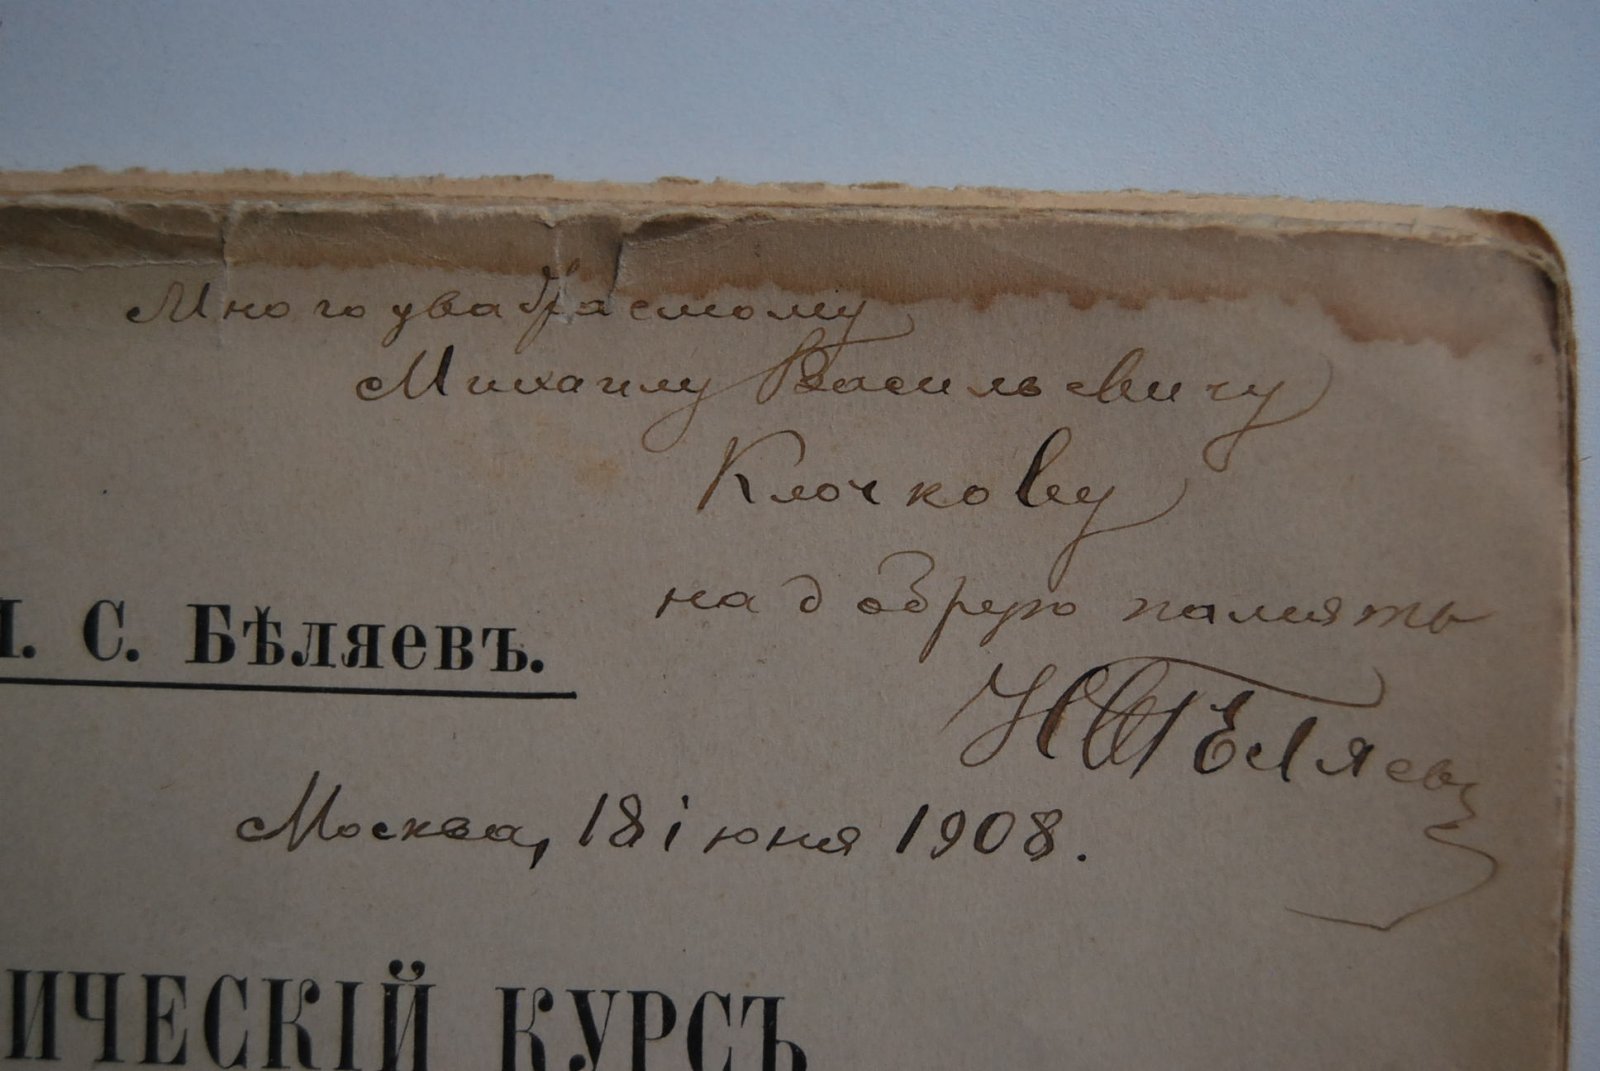 Многоуважаемому
Михаилу Васильевичу
Клочкову
на добрую память
Н С Беляевъ
С. Бѣляевъ.
Москва, 18 іюня 1908.
ИЧЕСКІЙ КУРСЪ